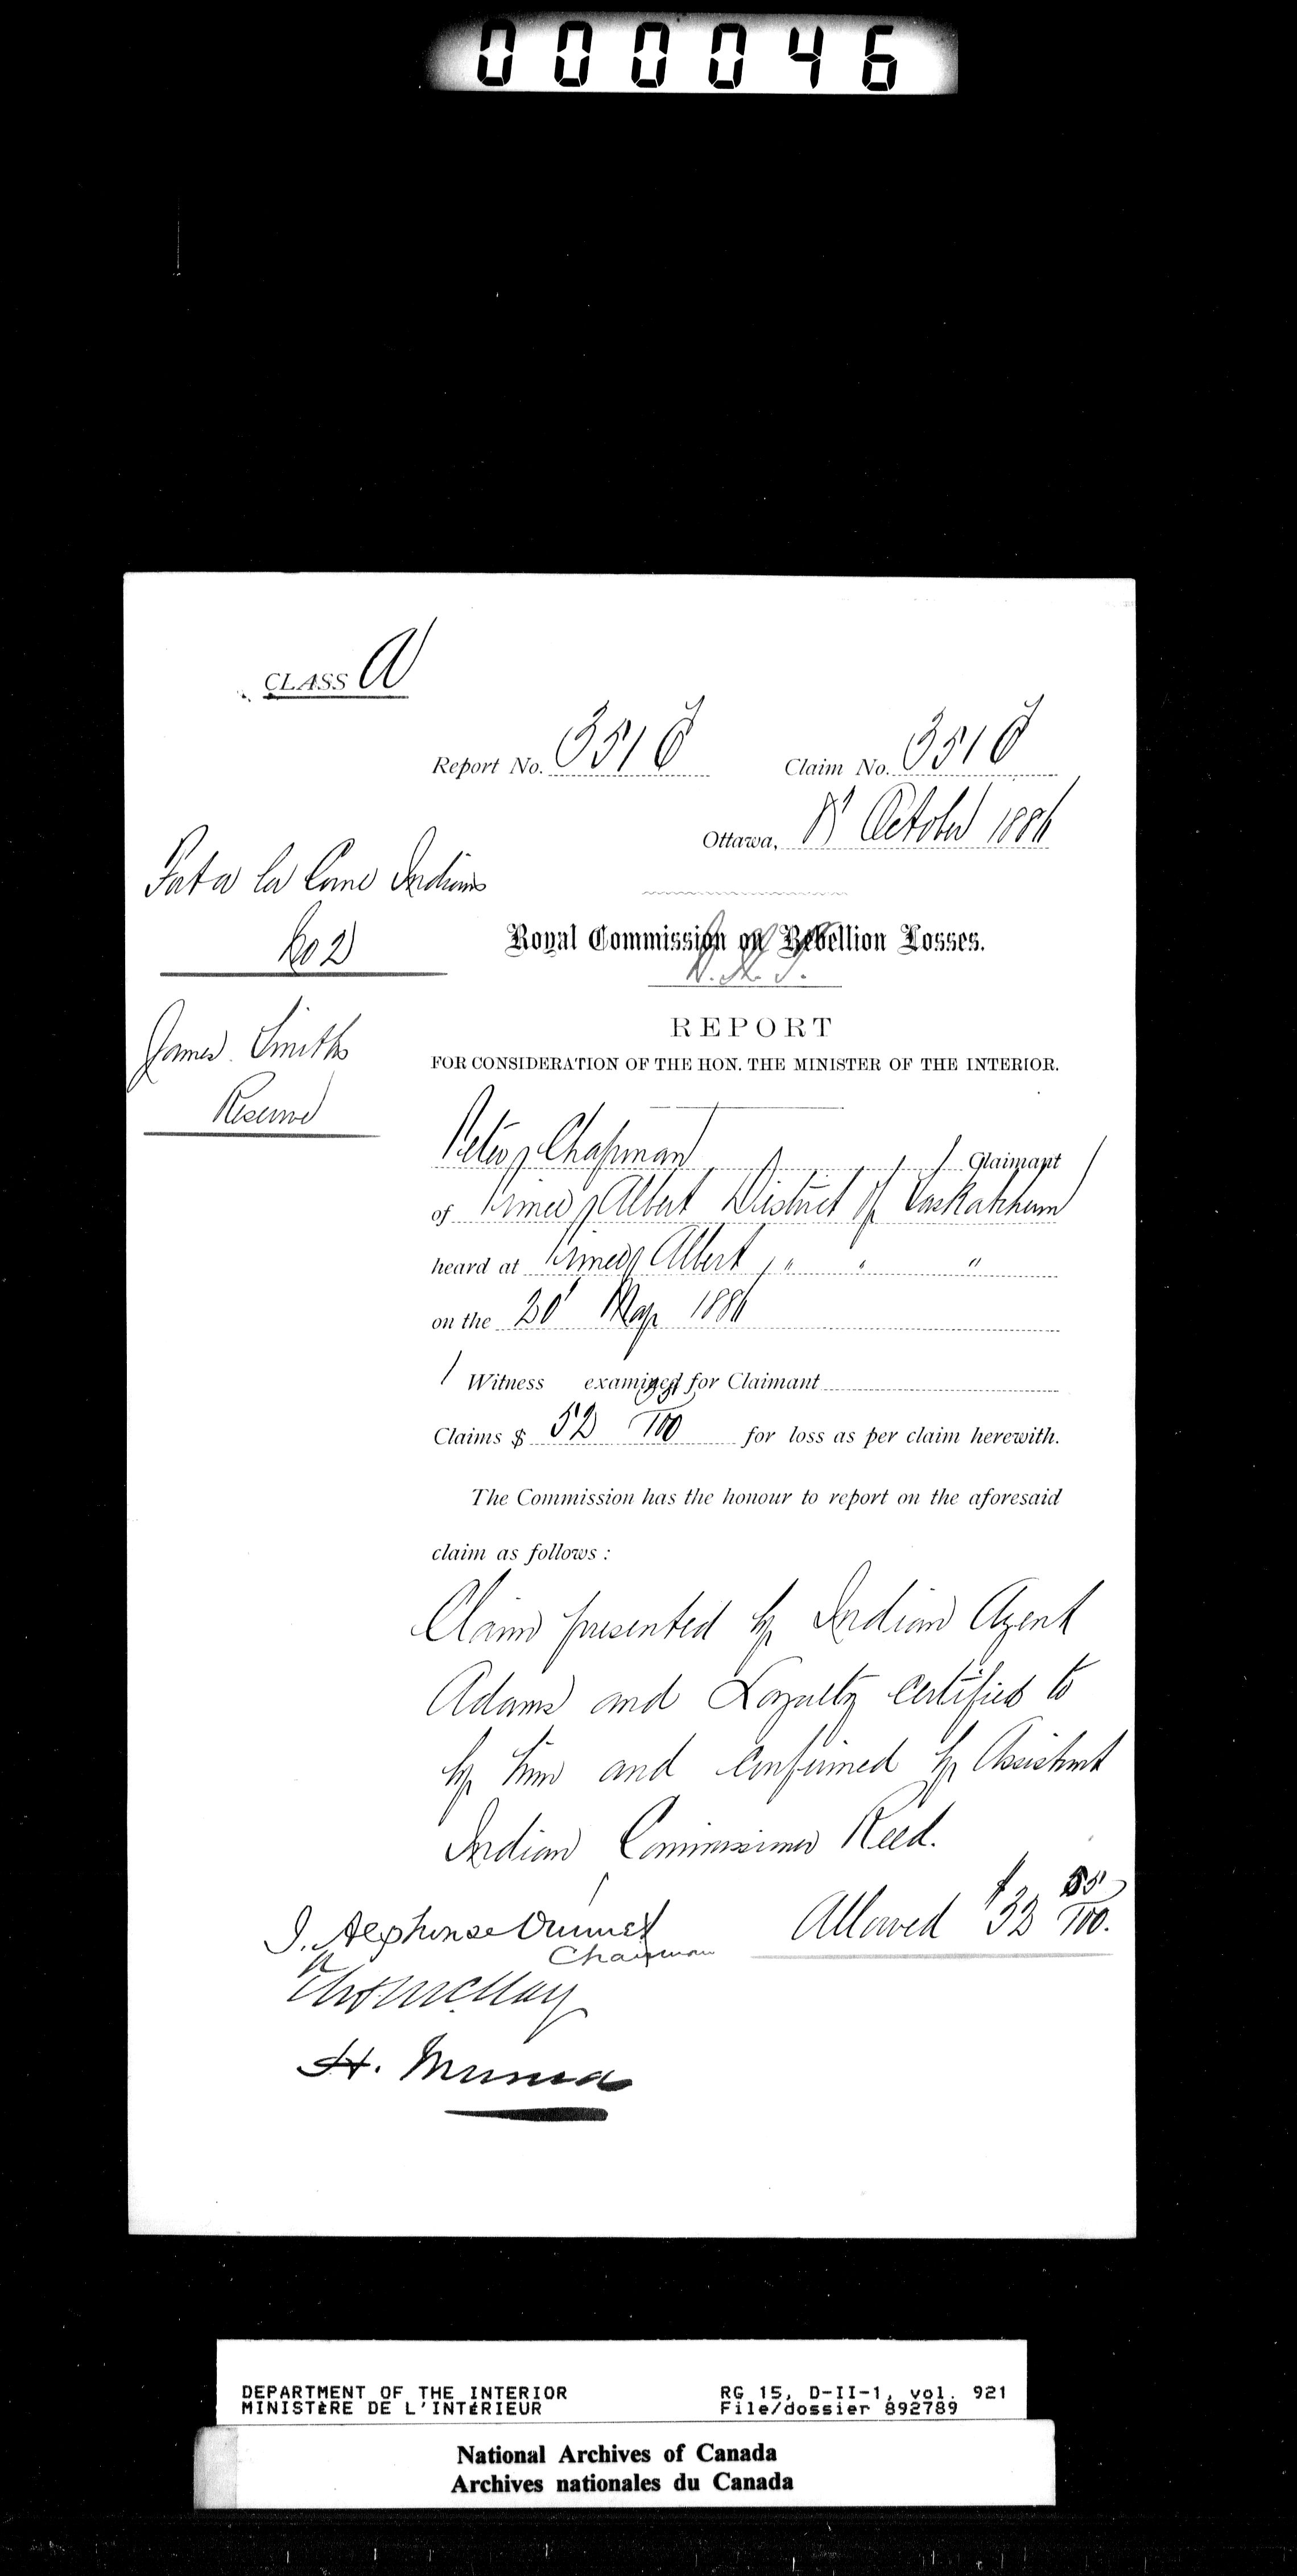 000046
CLASS A
Report No. 3516 Claim No. 3516
Ottawa, October 1886
Fort a la Corne Indians
No 2
Royal Commission on Rebellion Losses.
James Smiths
Reserve
REPORT
FOR CONSIDERATION OF THE HON. THE MINISTER OF THE INTERIOR.
Peter Chapman Claimant
of Prince Albert District of Saskatchewan
heard at Prince Albert " " "
on the 20' May 1886
1 Witness examined for Claimant
Claims $ 52 /100 for loss as per claim herewith.
The Commission has the honour to report on the aforesaid
claim as follows :
Claim presented by Indian Agent
Adams and Loyalty certified to
by him and confirmed by Assistant
Indian Commissioner Reed.
Allowed $32 55/100.
J. Alphonse Ouimet
Chairman
Thos McKay
H. Muma
DEPARTMENT OF THE INTERIOR RG 15, D-II-1, vol. 921
MINISTÈRE DE L'INTÉRIEUR File/dossier 892789
National Archives of Canada
Archives nationales du Canada